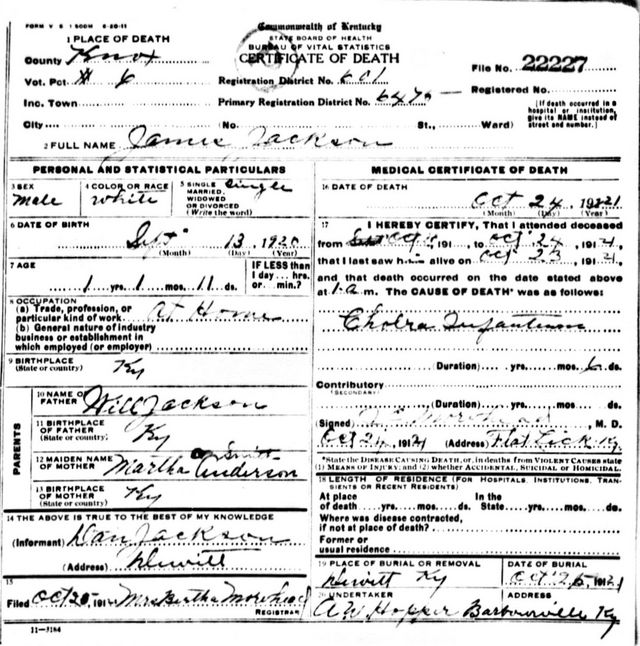 FORM V S 1 500M 6-20-11
Commonwealth of Kentucky
STATE BOARD OF HEALTH
BUREAU OF VITAL STATISTICS
CERTIFICATE OF DEATH
1 PLACE OF DEATH
County Knox
Vot. Pct # 6
Inc. Town
City (No. St., Ward)
Registration District No. 601
Primary Registration District No.
File No. 22227
Registered No.
[If death occurred in a hospital or institution, give its NAME instead of street and number.]
2 FULL NAME James Jackson
PERSONAL AND STATISTICAL PARTICULARS
3 SEX
Male
4 COLOR OR RACE
White
5 SINGLE
MARRIED,
WIDOWED
OR DIVORCED
(Write the word)
Single
6 DATE OF BIRTH
Sept 13, 1920
(Month) (Day) (Year)
7 AGE
1 yrs. 1 mos. 11 ds.
IF LESS than
1 day... hrs.
or... min.?
8 OCCUPATION
(a) Trade, profession, or
particular kind of work At Home
(b) General nature of industry
business or establishment in
which employed (or employer)
9 BIRTHPLACE
(State or country)
Ky
PARENTS
10 NAME OF
FATHER Will Jackson
11 BIRTHPLACE
OF FATHER
(State or country)
Ky
12 MAIDEN NAME
OF MOTHER Martha Anderson
13 BIRTHPLACE
OF MOTHER
(State or country)
Ky
14 THE ABOVE IS TRUE TO THE BEST OF MY KNOWLEDGE
(Informant) Dan Jackson
(Address) Dewitt
15
Filed Oct 191 Mrs Bertha Morehead
REGISTRAR
11-3184
MEDICAL CERTIFICATE OF DEATH
16 DATE OF DEATH
Oct 24, 1921
(Month) (Day) (Year)
17 I HEREBY CERTIFY, That I attended deceased
from 191, to Oct 24, 1921,
that I last saw him alive on Oct 23, 1921,
and that death occurred on the date stated above
at 1 a.m. The CAUSE OF DEATH* was as follows:
Cholra Infantum
(Duration) yrs. mos. 6 ds.
Contributory
(SECONDARY)
(Duration) yrs. mos. ds.
(Signed) Morehead, M. D.
Oct 24, 1921 (Address) Flat Lick Ky.
*State the DISEASE CAUSING DEATH, or, in deaths from VIOLENT CAUSES state
(1) MEANS OF INJURY; and (2) whether ACCIDENTAL, SUICIDAL or HOMICIDAL.
18 LENGTH OF RESIDENCE (FOR HOSPITALS, INSTITUTIONS, TRANSIENTS OR RECENT RESIDENTS)
At place
of death yrs. mos. ds.
In the
State yrs. mos. ds.
Where was disease contracted,
if not at place of death?
Former or
usual residence
19 PLACE OF BURIAL OR REMOVAL
Dewitt Ky
DATE OF BURIAL
Oct 25, 1921
20 UNDERTAKER
A.W. Hopper
ADDRESS
Barbourville Ky